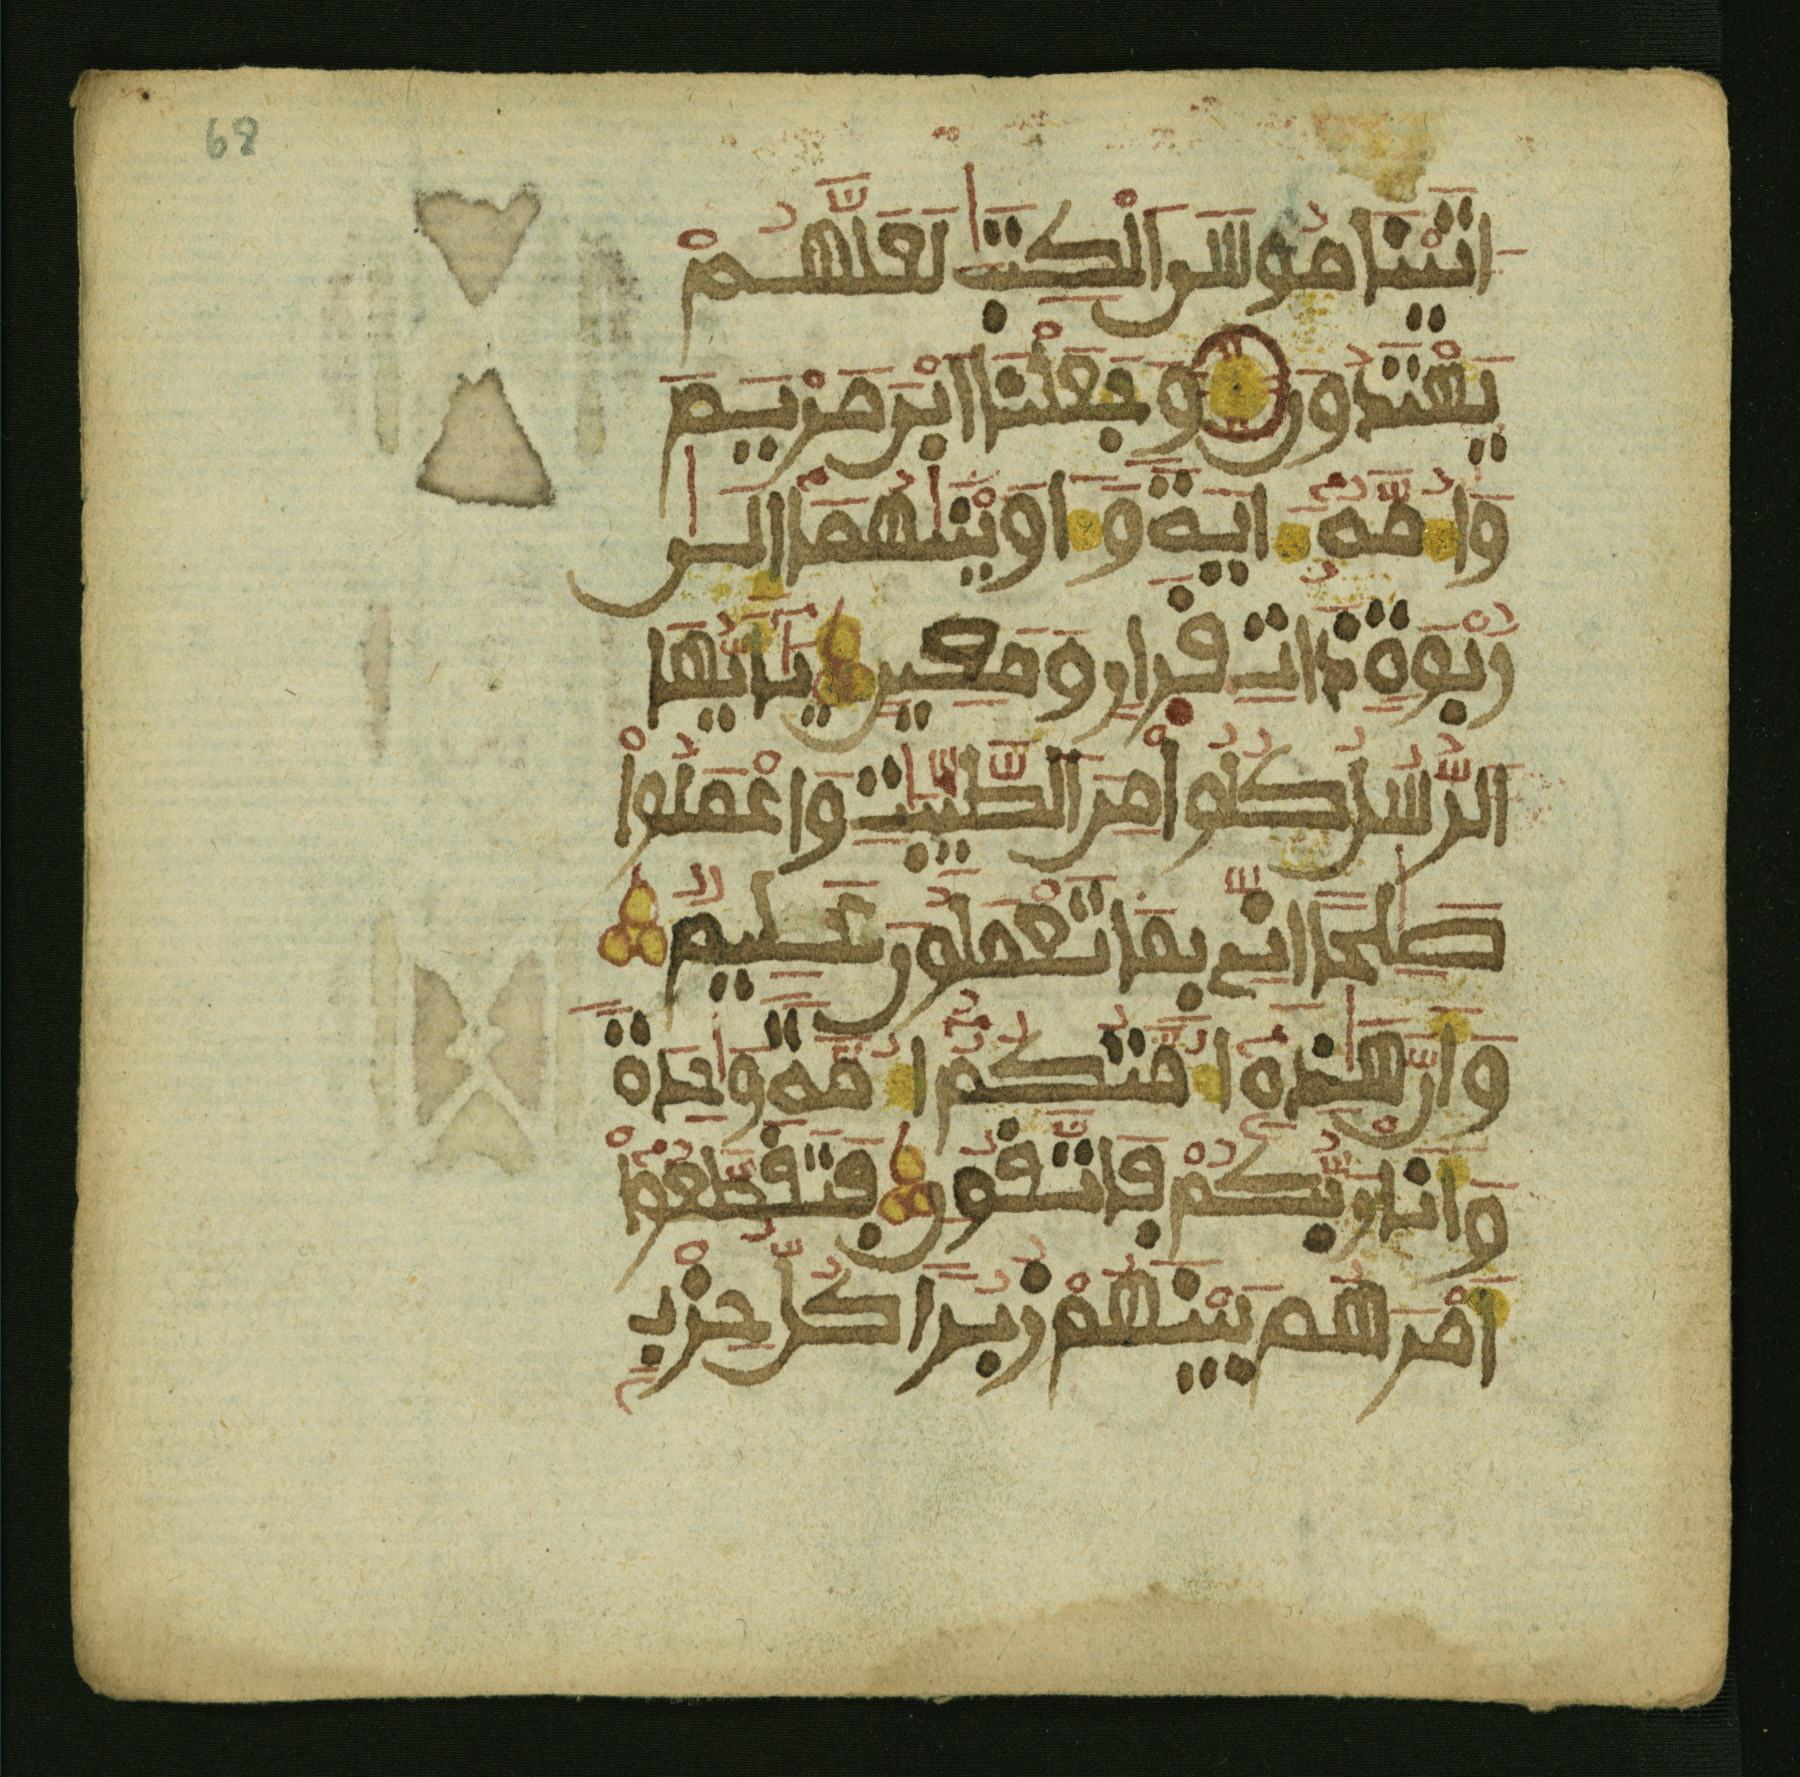 68
اتَيْنَا مُوسَى اَلْكِتَٰبَ لَعَلَّهُمْ
يَهْتَدُونَ وَجَعَلْنَا اَبْنَ مَرْيَمَ
وَأُمَّهُۥ ءَايَةً وَءَاوَيْنَٰهُمَا إِلَىٰ
رُبْوَةٍ ذَاتِ قَرَارٍ وَمَعِينٍ يَا أَيُّهَا
اَلرُّسُلُ كُلُوا مِنَ اَلطَّيِّبَٰتِ وَاعْمَلُوا
صَٰلِحًا اِنِّي بِمَا تَعْمَلُونَ عَلِيمٌ
وَأَنَّ هَٰذِهِۦ أُمَّتُكُمُۥ أُمَّةً وَٰحِدَةً
وَأَنَا رَبُّكُمْ فَاتَّقُونِ فَتَقَطَّعُوا
أَمْرَهُم بَيْنَهُمْ زُبُرًا كُلُّ حِزْبٍ